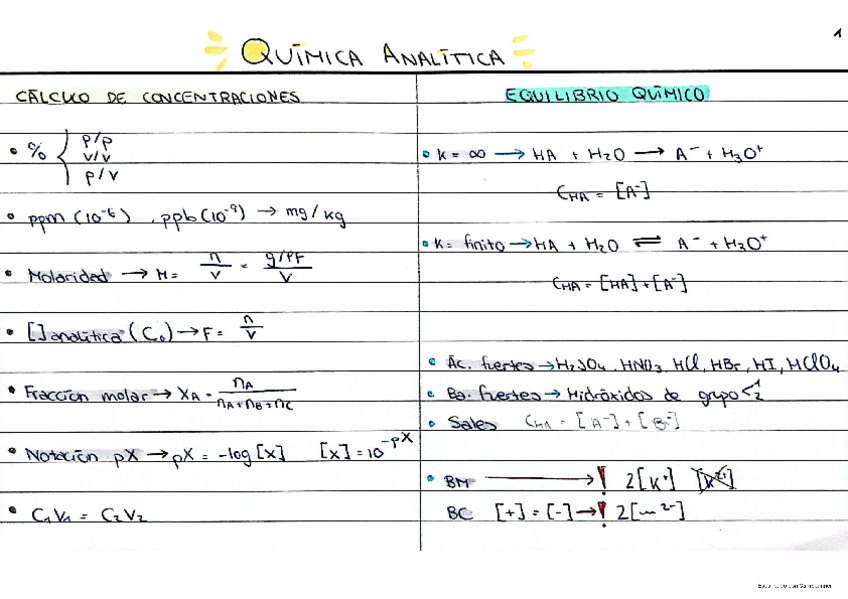 1
QUÍMICA ANALÍTICA
CÁLCULO DE CONCENTRACIONES
• % { p/p
v/v
p/v
• ppm (10⁻⁶), ppb (10⁻⁹) → mg/kg
• Molaridad → M = n/v = g/PF/V
• [] analítica (C₀) → F = n/v
• Fracción molar → XA = nA/nA+nB+nC
• Notación pX → pX = -log [x] [x] = 10^-pX
• C₁V₁ = C₂V₂
EQUILIBRIO QUÍMICO
• K = ∞ → HA + H₂O → A⁻ + H₃O⁺
CHA = [A⁻]
• K = finito → HA + H₂O ⇌ A⁻ + H₃O⁺
CHA = [HA] + [A⁻]
• Ác. fuertes → H₂SO₄, HNO₃, HCl, HBr, HI, HClO₄
• Ba. fuertes → Hidróxidos de grupo < 1 2
• Sales CHA = [A⁻] + [B⁻]
• BM → ! 2[K⁺]
BC [+] = [-] → ! 2[m²⁻]